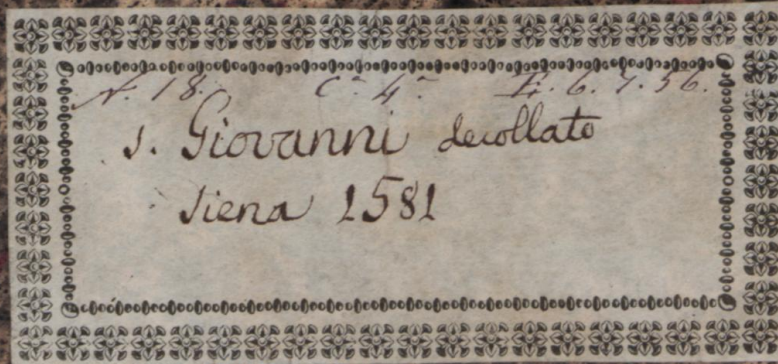 N. 18. C.a 4.a Li. 6. 7. 56.
s. Giovanni decollato
Siena 1581